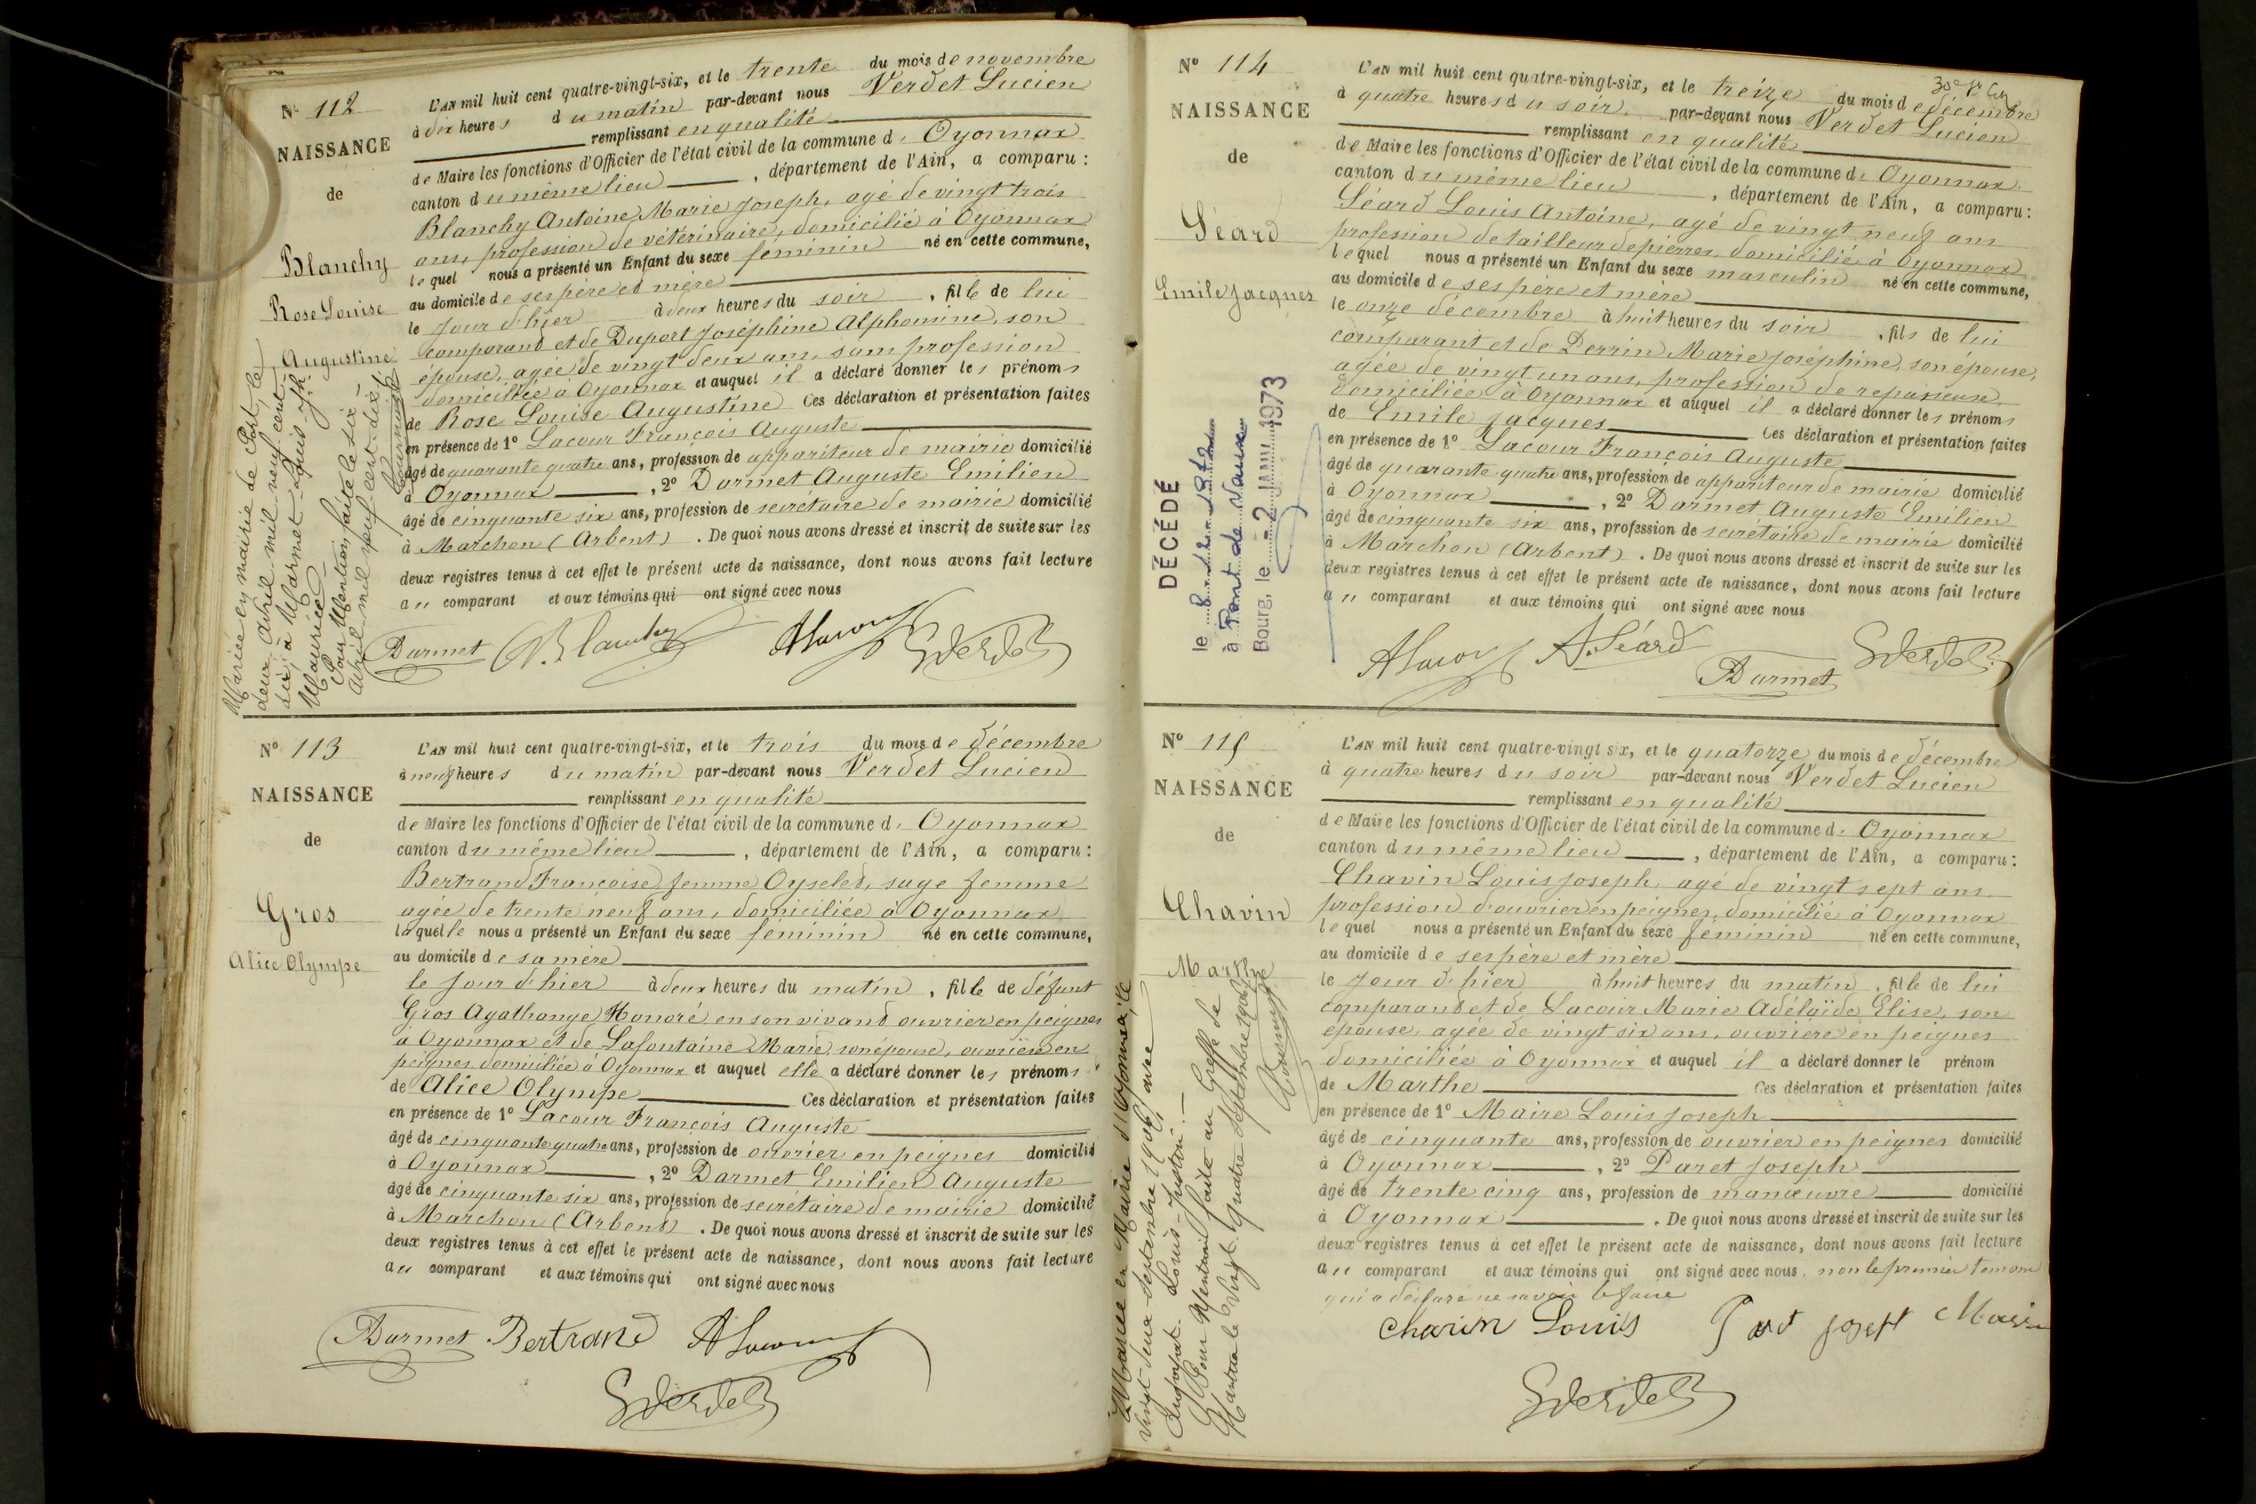 N° 112
NAISSANCE
de
Blanchy
Rose Louise
Augustine
Mariée en mairie de Port, le
deux Avril mil neuf cent
dix, à Marmet Louis Jh
Maurice
Pour Mention faite le six
avril mil neuf cent dix
L'AN mil huit cent quatre-vingt-six, et le trente du mois de novembre
à dix heures du matin par-devant nous Verdet Lucien
remplissant en qualité
de Maire les fonctions d'Officier de l'état civil de la commune d' Oyonnax
canton du même lieu , département de l'Ain, a comparu :
Blanchy Antoine Marie Joseph, agé de vingt trois
ans, profession de vétérinaire, domicilié à Oyonnax
lequel nous a présenté un Enfant du sexe féminin né en cette commune,
au domicile de ses père et mère
le jour d'hier à deux heures du soir , fille de lui
comparant et de Duport Joséphine Alphonsine, son
épouse, agée de vingt deux ans, sans profession
domiciliée à Oyonnax et auquel il a déclaré donner les prénoms
de Rose Louise Augustine Ces déclaration et présentation faites
en présence de 1° Lacour François Auguste
âgé de quarante quatre ans, profession de appariteur de mairie domicilié
à Oyonnax , 2° Darmet Auguste Emilien
âgé de cinquante six ans, profession de secrétaire de mairie domicilié
à Marchon (Arbent) . De quoi nous avons dressé et inscrit de suite sur les
deux registres tenus à cet effet le présent acte de naissance, dont nous avons fait lecture
au comparant et aux témoins qui ont signé avec nous
Darmet Blanchy ALacour LVerdet
N° 113
NAISSANCE
de
Gros
Alice Olympe
L'AN mil huit cent quatre-vingt-six, et le trois du mois de décembre
à neuf heures du matin par-devant nous Verdet Lucien
remplissant en qualité
de Maire les fonctions d'Officier de l'état civil de la commune d' Oyonnax
canton du même lieu , département de l'Ain, a comparu :
Bertrand Françoise femme Oyselet, sage femme
agée de trente neuf ans, domiciliée à Oyonnax
laquelle nous a présenté un Enfant du sexe féminin né en cette commune,
au domicile de sa mère
le jour d'hier à deux heures du matin , fille de défunt
Gros Agathange Honoré en son vivant ouvrier en peignes
à Oyonnax et de Lafontaine Marie, son épouse, ouvrière en
peignes domiciliée à Oyonnax et auquel elle a déclaré donner les prénoms
de Alice Olympe Ces déclaration et présentation faites
en présence de 1° Lacour François Auguste
âgé de cinquante quatre ans, profession de ouvrier en peignes domicilié
à Oyonnax , 2° Darmet Emilien Auguste
âgé de cinquante six ans, profession de secrétaire de mairie domicilié
à Marchon (Arbent) . De quoi nous avons dressé et inscrit de suite sur les
deux registres tenus à cet effet le présent acte de naissance, dont nous avons fait lecture
au comparant et aux témoins qui ont signé avec nous
Darmet Bertrand ALacour
LVerdet
N° 114
NAISSANCE
de
Séard
Emile Jacques
DÉCÉDÉ
le 8.12.1972
à Pont de Vaux
Bourg, le 2 JANV. 1973
L'AN mil huit cent quatre-vingt-six, et le treize du mois de décembre
à quatre heures du soir par-devant nous Verdet Lucien
remplissant en qualité
de Maire les fonctions d'Officier de l'état civil de la commune d' Oyonnax
canton du même lieu , département de l'Ain, a comparu :
Séard Louis Antoine, agé de vingt neuf ans
profession de tailleur de pierres, domicilié à Oyonnax
lequel nous a présenté un Enfant du sexe masculin né en cette commune,
au domicile de ses père et mère
le onze décembre à huit heures du soir , fils de lui
comparant et de Perrin Marie Joséphine, son épouse,
agée de vingt un ans, profession de repasseuse,
domiciliée à Oyonnax et auquel il a déclaré donner les prénoms
de Emile Jacques Ces déclaration et présentation faites
en présence de 1° Lacour François Auguste
âgé de quarante quatre ans, profession de appariteur de mairie domicilié
à Oyonnax , 2° Darmet Auguste Emilien
âgé de cinquante six ans, profession de secrétaire de mairie domicilié
à Marchon (Arbent) . De quoi nous avons dressé et inscrit de suite sur les
deux registres tenus à cet effet le présent acte de naissance, dont nous avons fait lecture
au comparant et aux témoins qui ont signé avec nous
ALacour A. Séard Darmet LVerdet
N° 115
NAISSANCE
de
Chavin
Marthe
Mariée en Mairie d'Oyonnax, le
vingt deux septembre 1906, avec
Louis-Justin.
Pour Mention faite au Greffe de
Nantua le vingt quatre septembre 1906
L'AN mil huit cent quatre-vingt six, et le quatorze du mois de décembre
à quatre heures du soir par-devant nous Verdet Lucien
remplissant en qualité
de Maire les fonctions d'Officier de l'état civil de la commune d' Oyonnax
canton du même lieu , département de l'Ain, a comparu :
Chavin Louis Joseph, agé de vingt sept ans
profession d'ouvrier en peignes, domicilié à Oyonnax
lequel nous a présenté un Enfant du sexe féminin né en cette commune,
au domicile de ses père et mère
le jour d'hier à huit heures du matin , fille de lui
comparant et de Lacour Marie Adélaïde Elise, son
épouse, agée de vingt six ans, ouvrière en peignes
domiciliée à Oyonnax et auquel il a déclaré donner le prénom
de Marthe Ces déclaration et présentation faites
en présence de 1° Maire Louis Joseph
âgé de cinquante ans, profession de ouvrier en peignes domicilié
à Oyonnax , 2° Paret Joseph
âgé de trente cinq ans, profession de manœuvre domicilié
à Oyonnax . De quoi nous avons dressé et inscrit de suite sur les
deux registres tenus à cet effet le présent acte de naissance, dont nous avons fait lecture
au comparant et aux témoins qui ont signé avec nous, non le premier témoin
qui a déclaré ne savoir le faire
Chavin Louis Paret Joseph Maire
LVerdet